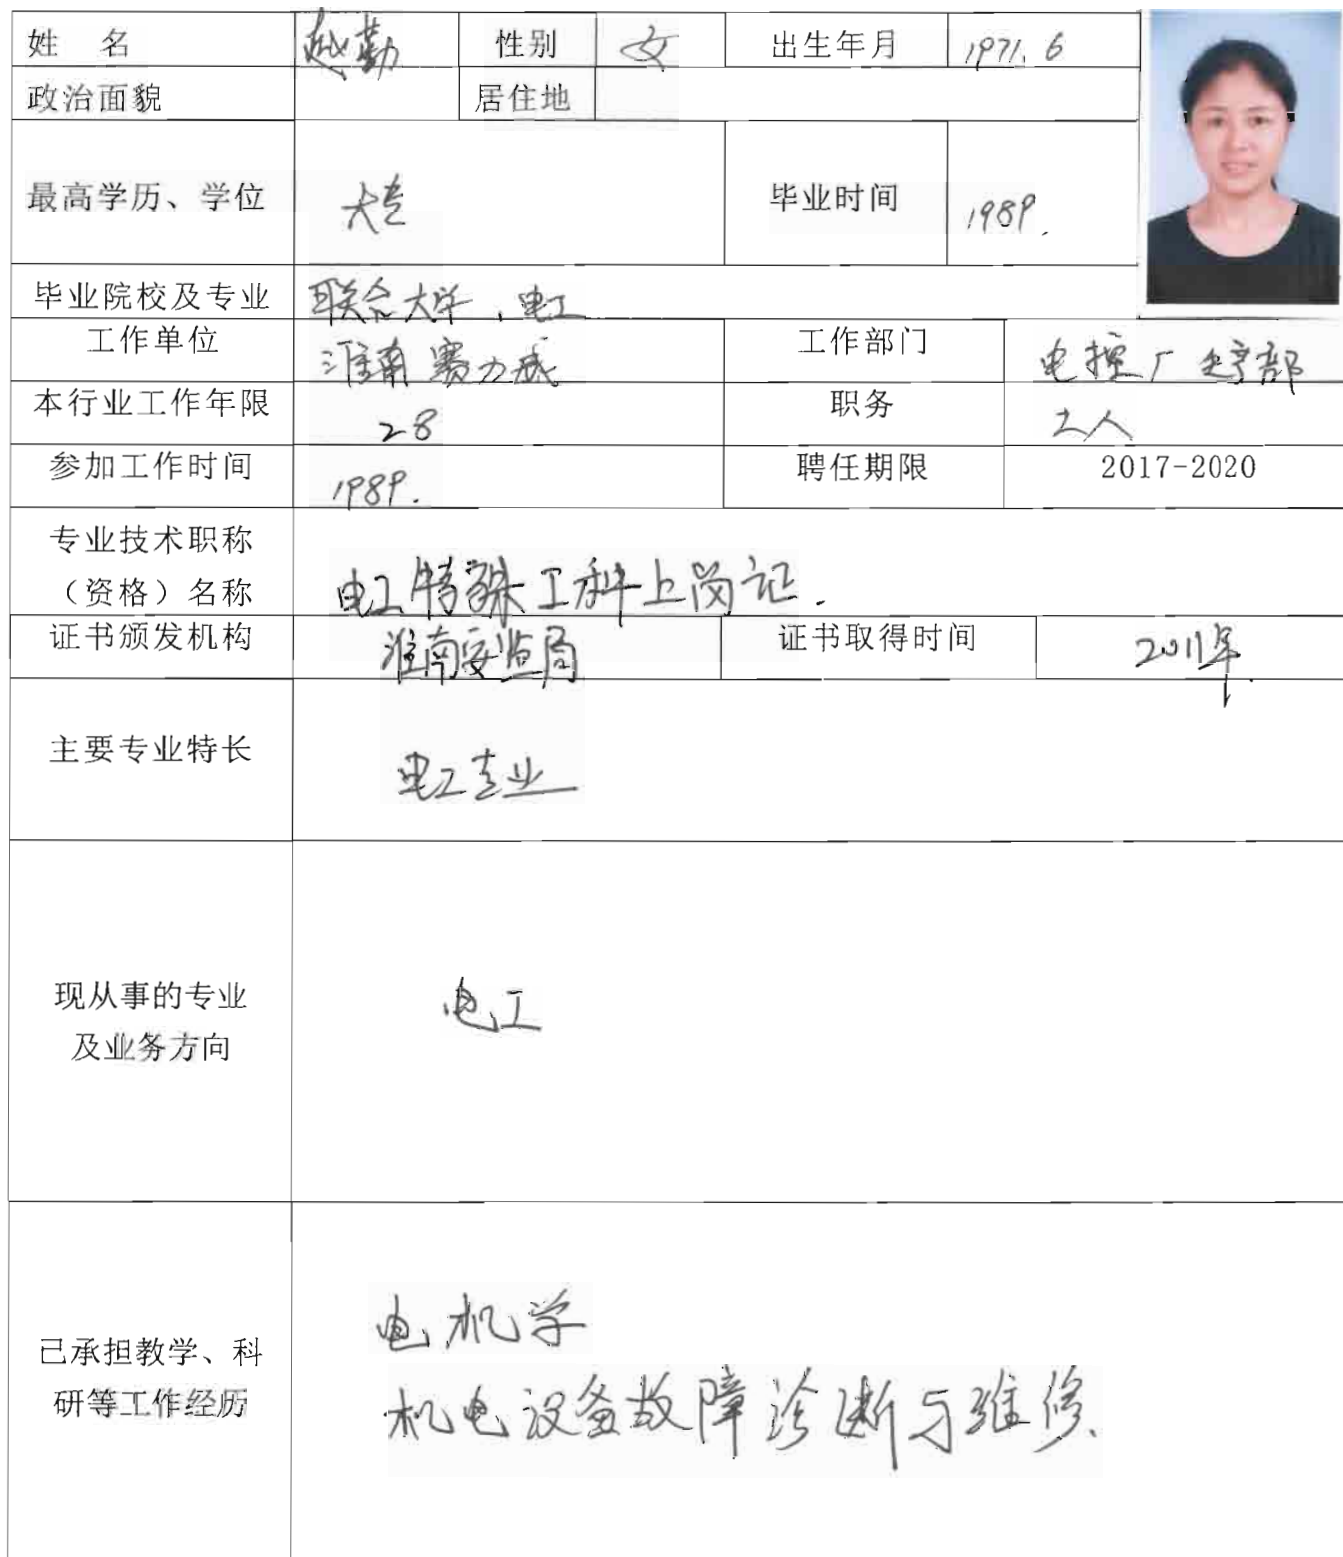 姓 名 赵勤 性别 女 出生年月 1971.6
政治面貌 居住地
最高学历、学位 大专 毕业时间 1989.
毕业院校及专业 联合大学、电工
工作单位 淮南赛力威 工作部门 电控厂 部
本行业工作年限 28 职务 工人
参加工作时间 1989. 聘任期限 2017-2020
专业技术职称
（资格）名称 电工特殊工种上岗证.
证书颁发机构 淮南安监局 证书取得时间 2011年
主要专业特长 电工专业
现从事的专业
及业务方向 电工
已承担教学、科
研等工作经历 电机学
机电设备故障诊断与维修.